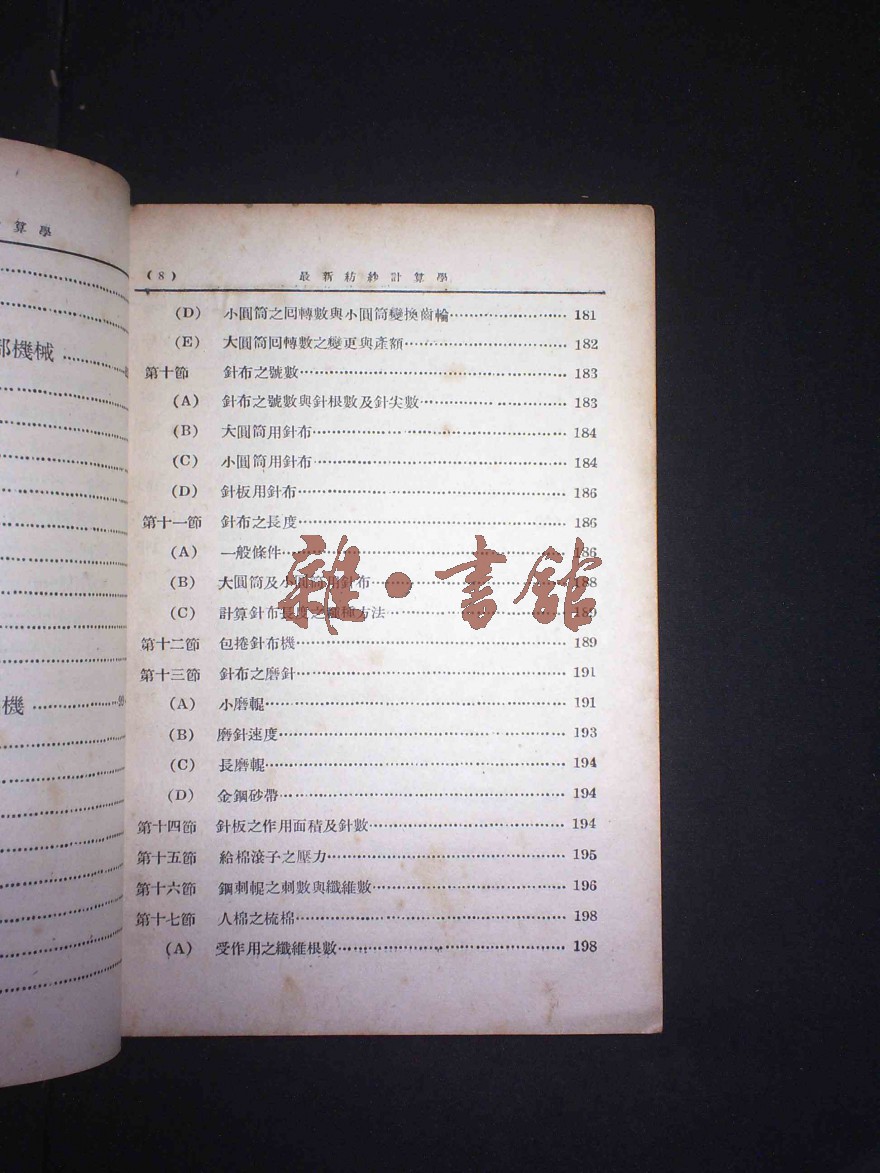 算學
部機械
機
(8) 最新紡紗計算學
(D) 小圓筒之回轉數與小圓筒變換齒輪 181
(E) 大圓筒回轉數之變更與產額 182
第十節 針布之號數 183
(A) 針布之號數與針根數及針尖數 183
(B) 大圓筒用針布 184
(C) 小圓筒用針布 184
(D) 針板用針布 186
第十一節 針布之長度 186
(A) 一般條件 186
(B) 大圓筒及小圓筒用針布 188
(C) 計算針布長度之種種方法 189
第十二節 包捲針布機 189
第十三節 針布之磨針 191
(A) 小磨輥 191
(B) 磨針速度 193
(C) 長磨輥 194
(D) 金鋼砂帶 194
第十四節 針板之作用面積及針數 194
第十五節 給棉滾子之壓力 195
第十六節 鋼刺輥之刺數與纖維數 196
第十七節 人棉之梳棉 198
(A) 受作用之纖維根數 198
雜·書館